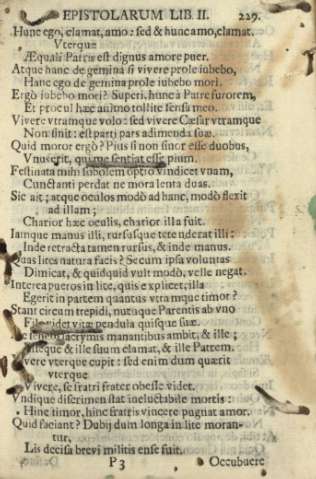 EPISTOLARUM LIB. II. 229.
Hunc ego, clamat, amo: sed & hunc amo, clamat.
Vterque
Æquali Patria est dignus amore puer.
Atque hanc de gemina si vivere prole iubebo,
Hanc ego de gemina prole iubebo mori.
Ergò iubebo mori? Superi, hunc à Patre furorem,
Et procul hæc animo tollite sensa meo.
Vivere vtramque volo: sed vivere Cæsar vtramque
Non sinit: est parti pars adimenda suæ.
Quid moror ergò? Pius si non sinor esse duobus,
Vnus erit, qui me sentiat esse pium.
Festinata mihi sobolem optio vindicet vnam,
Cunctanti perdat ne mora lenta duas.
Sic ait; atque oculos modò ad hanc, modò flexit
ad illam;
Charior hæc oculis, charior illa fuit.
Iamque manus illi, rursusque tetenderat illi:
Inde retracta tamen rursus, & inde manus.
Quas lites natura facis? Secum ipsa voluntas
Dimicat, & quidquid vult modò, velle negat.
Interea pueros in lite, quis explicet, illa
Egerit in partem quantus vtramque timor?
Stant circum trepidi, nutuque Parentis ab vno
videt vitæ pendula quisque suæ.
lacrymis manantibus ambit, & ille;
& ille suum clamat, & ille Patrem.
vivere vterque cupit: sed enim dum quærit
vterque
Vivere, se fratri frater obesse videt.
Vndique discrimen stat ineluctabile mortis:
Hinc timor, hinc fratris vincere pugnat amor.
Quid faciant? Dubij dum longa in lite morantur,
Lis decisa brevi militis ense fuit.
P 3 Occubuere